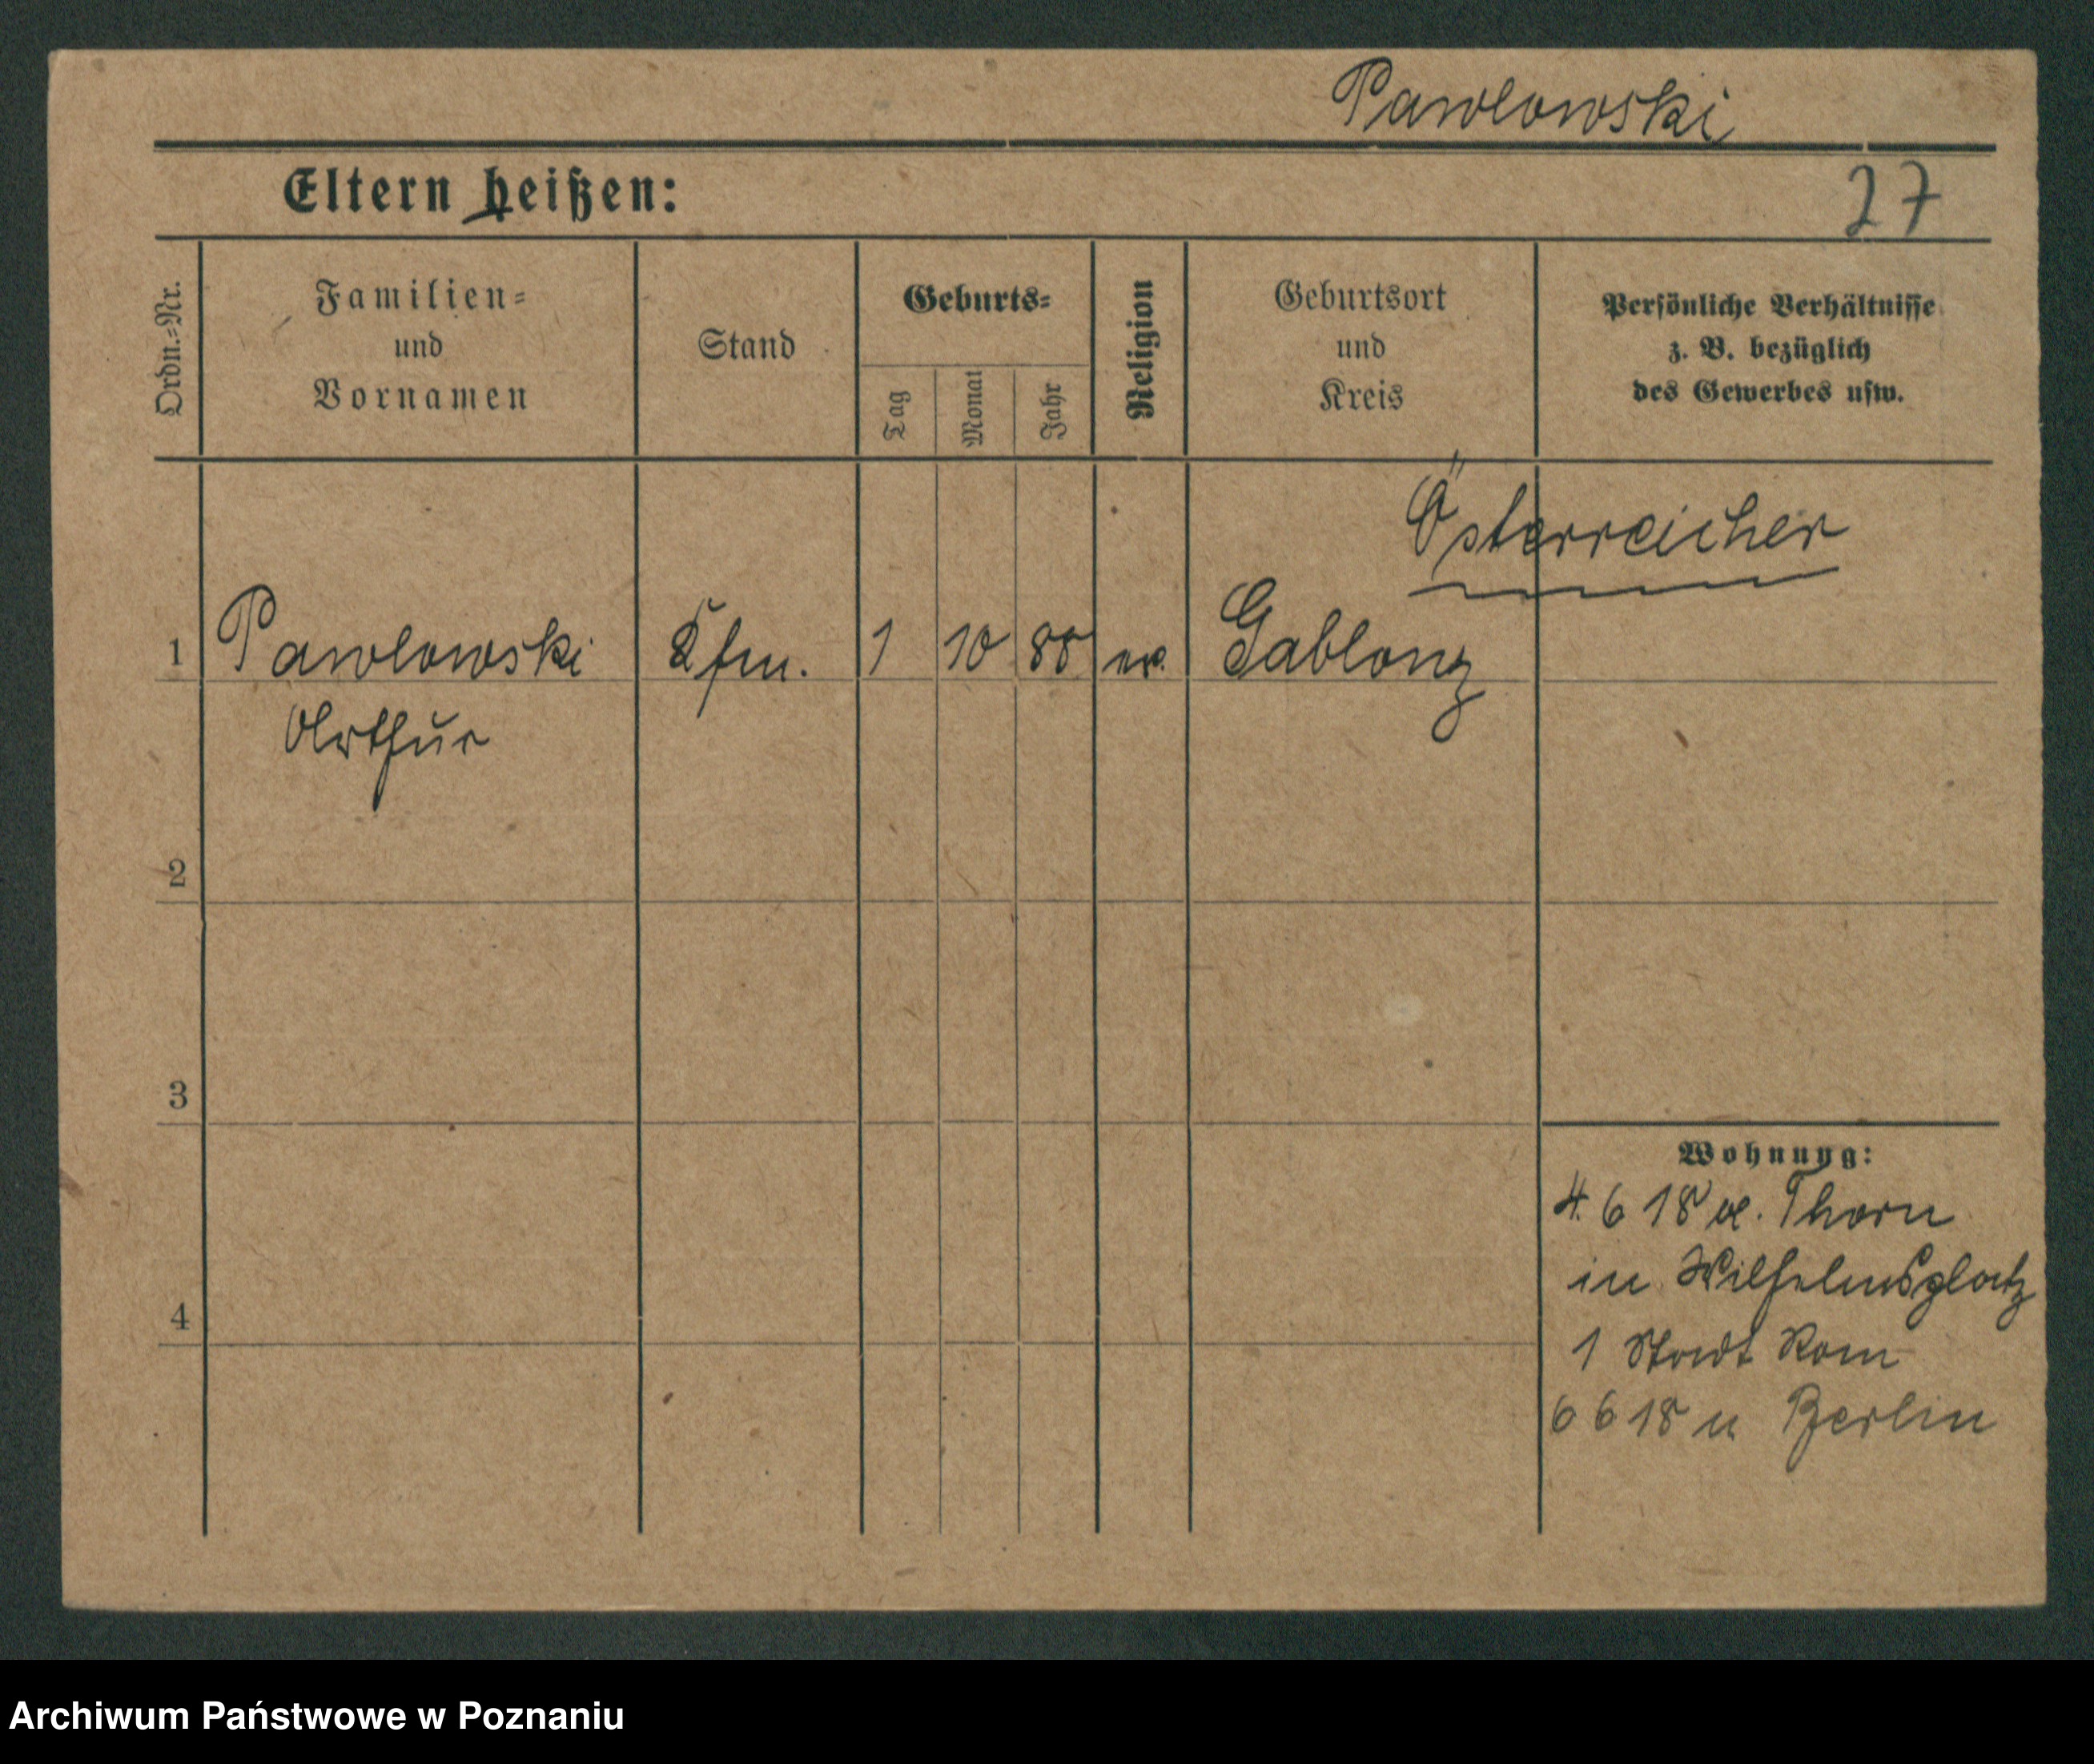 Pawlowski
Eltern heißen:
27
Ordn.-Nr.
Familien-
und
Vornamen
Stand
Geburts-
Tag
Monat
Jahr
Religion
Geburtsort
und
Kreis
Persönliche Verhältnisse
z. B. bezüglich
des Gewerbes usw.
Österreicher
1 Pawlowski Kfm. 1 10 88 ev. Gablonz
Arthur
2
3
4
Wohnung:
4. 6 18 v. Thorn
in Wilhelmsplatz
1 Stadt Rom
6 6 18 n Berlin
Archiwum Państwowe w Poznaniu